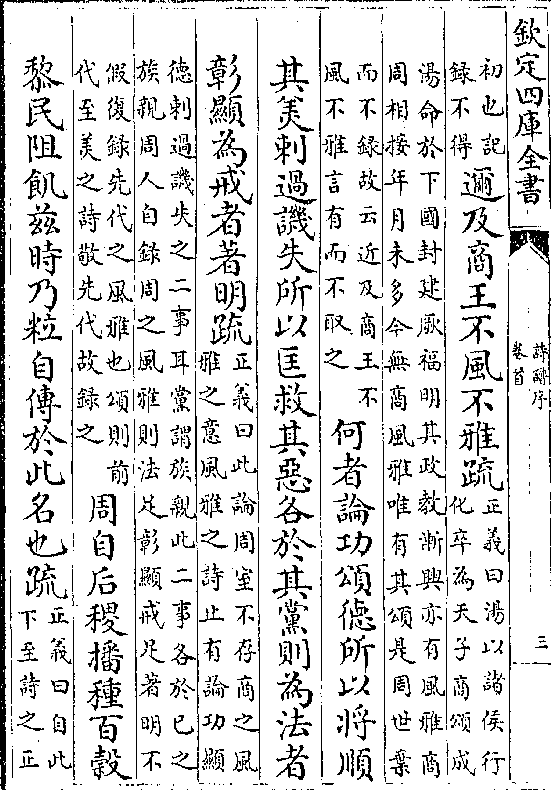 欽定四庫全書
詩譜序
卷首
三
初也記
錄不得
邇及商王不風不雅疏
正義曰湯以諸侯行
化卒為天子商頌成
湯命於下國封建厥福明其政教漸興亦有風雅商
周相接年月未多今無商風雅唯有其頌是周世棄
而不錄故云近及商王不
風不雅言有而不取之
何者論功頌德所以將順
其美刺過譏失所以匡救其惡各於其黨則為法者
彰顯為戒者著明疏
正義曰此論周室不存商之風
雅之意風雅之詩止有論功顯
德刺過譏失之二事耳黨謂族親此二事各於己之
族親周人自錄周之風雅則法足彰顯戒足著明不
假復錄先代之風雅也頌則前
代至美之詩敬先代故錄之
周自后稷播種百穀
黎民阻飢茲時乃粒自傳於此名也疏
正義曰自此
下至詩之正